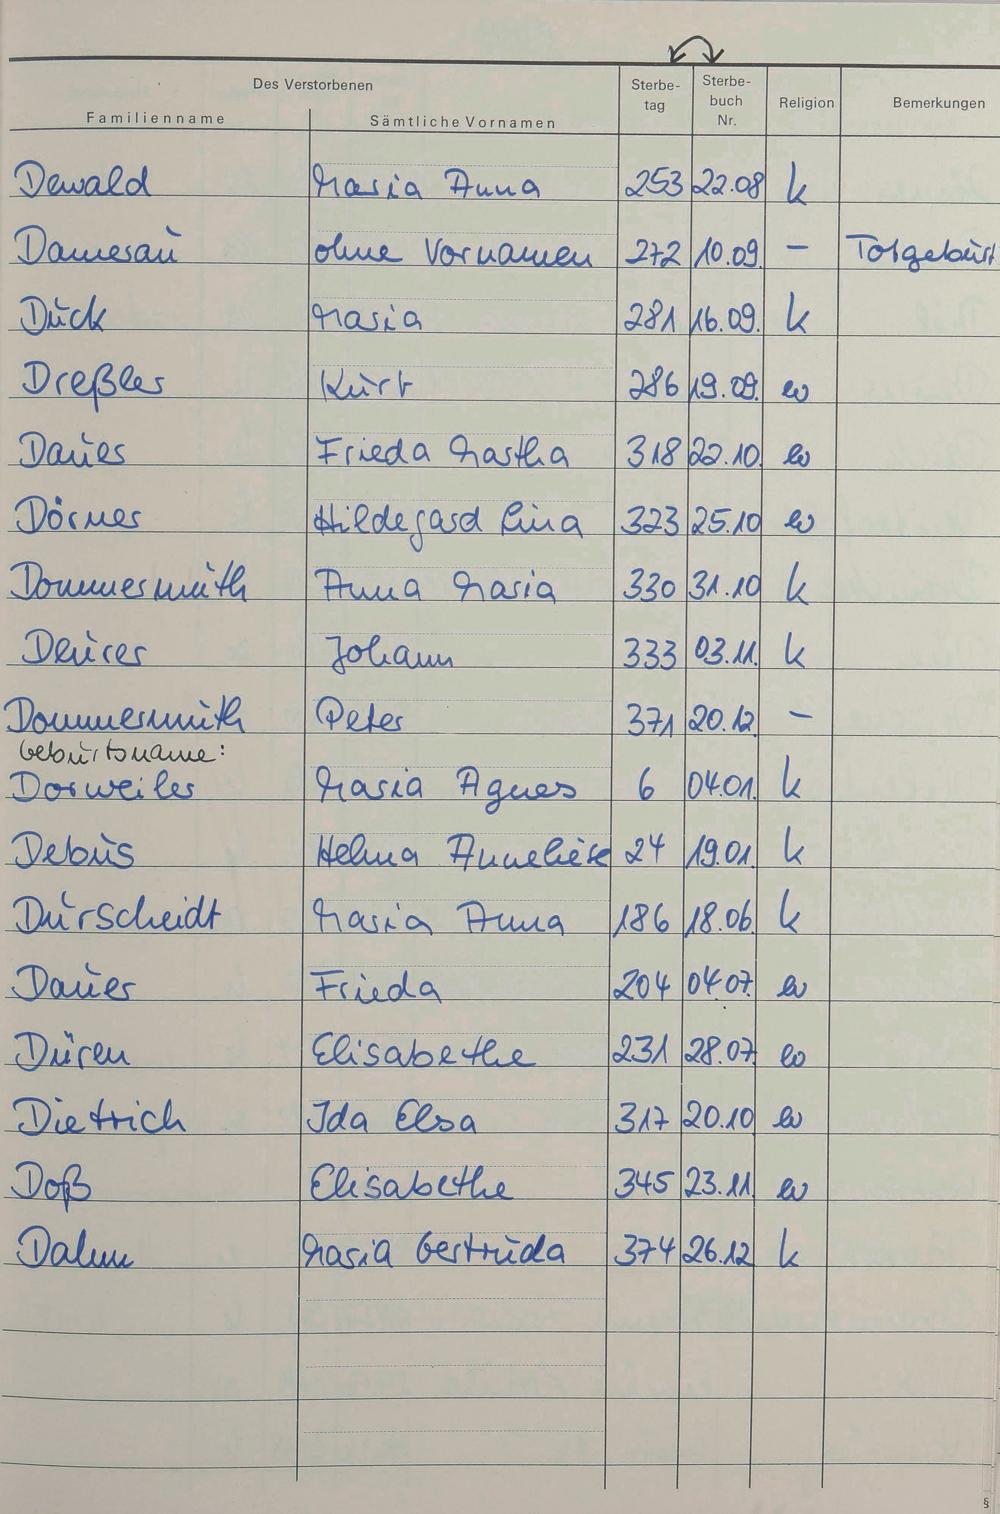 Des Verstorbenen
Familienname Sämtliche Vornamen Sterbe-tag Sterbe-buch Nr. Religion Bemerkungen
Dewald Maria Anna 253 22.08 k
Damerau ohne Vornamen 272 10.09. – Totgeburt
Dück Maria 281 16.09. k
Dreßler Kurt 286 19.09. ev
Dauer Frieda Martha 318 22.10. ev
Dörner Hildegard Lina 323 25.10 ev
Dommermuth Anna Maria 330 31.10 k
Deurer Johann 333 03.11. k
Dommermuth Peter 371 20.12. –
Geburtsname:
Dorweiler Maria Agnes 6 04.01. k
Debus Helma Anneliese 24 19.01. k
Dürscheidt Maria Anna 186 18.06. k
Dauer Frieda 204 04.07. ev
Düren Elisabethe 231 28.07 ev
Dietrich Ida Elsa 317 20.10 ev
Doß Elisabethe 345 23.11. ev
Dalm Maria Gertruda 374 26.12 k
§